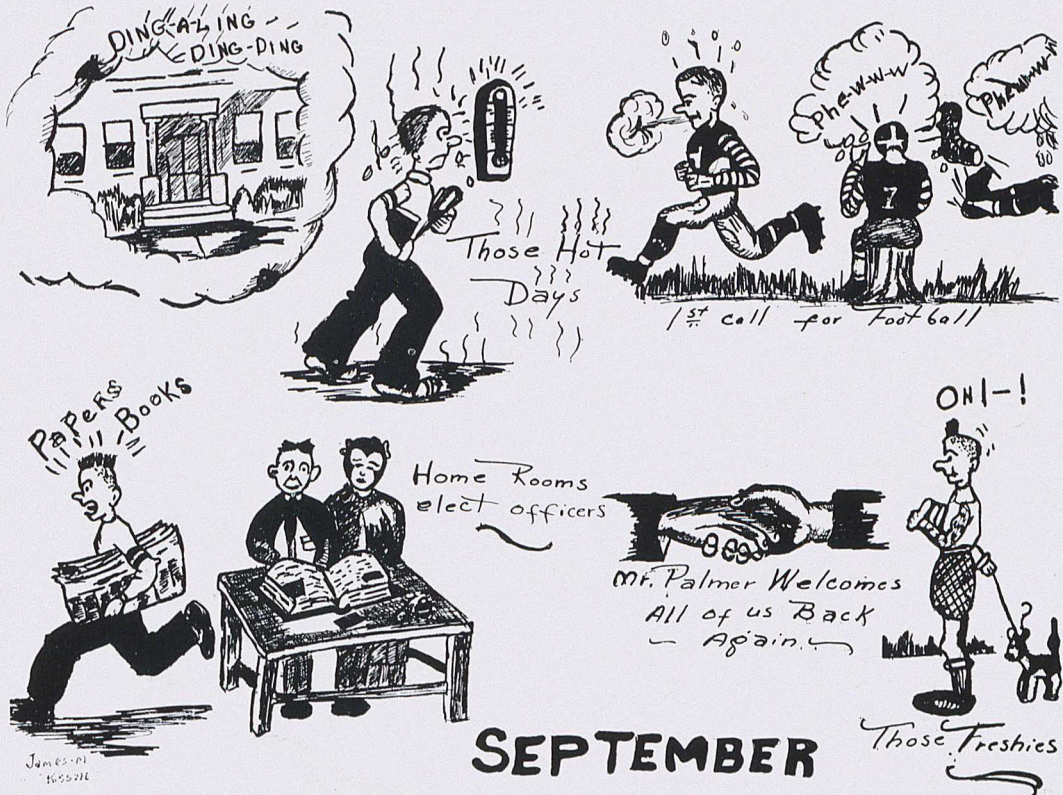 DING-A-LING
DING-DING
Those Hot
Days
Phe-w-w-w
7
1st call for Football
Papers
Books
Home Rooms
elect officers
Mr. Palmer Welcomes
All of us Back
- Again. -
OH!-!
?
Those Freshies
SEPTEMBER
James M